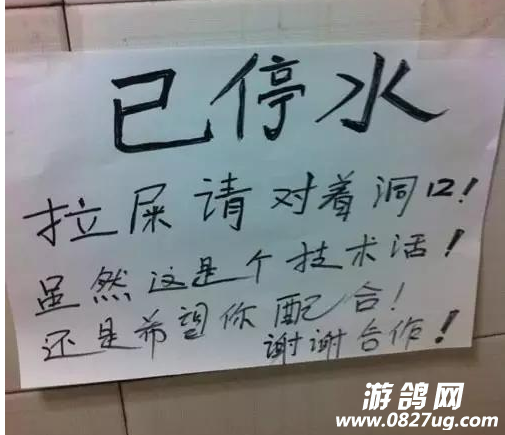 已停水
拉屎请对着洞口！
虽然这是个技术活！
还是希望你配合！
谢谢合作！
游鸽网
www.0827ug.com